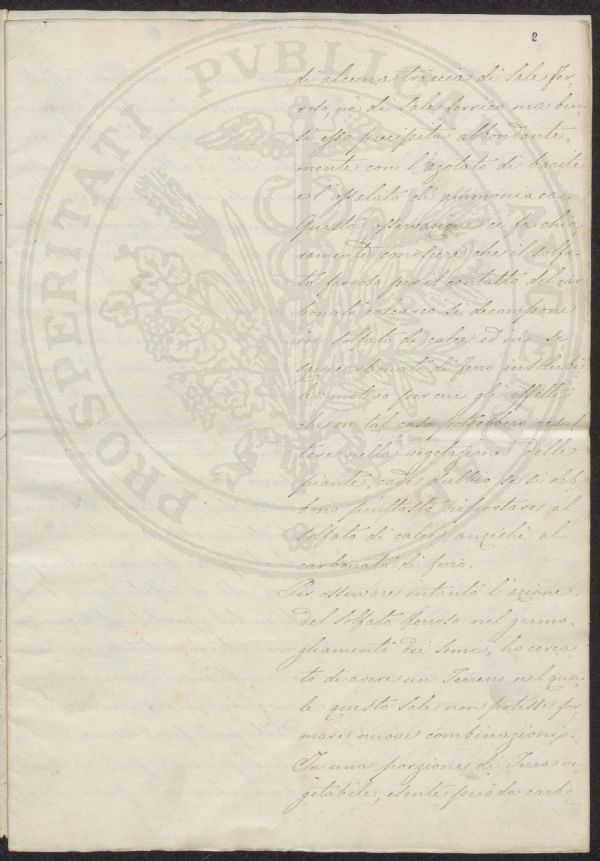 2
di alcuna traccia di Sale Fer-
roso, nè di Sale ferrico ma ben-
si esso precipita abbondante-
mente con l'azotato di barite
e l'ossalato di ammoniaca.
Questa osservazione ci fa chia-
ramente conoscere che il solfa-
to ferroso per il contatto del car
bonato calcareo si decompone
in solfato di calce ed in se
carbonato di ferro insolubi
le, motivo per cui gli effetti
che in tal caso potrebbero resul
tare nella vegetazione delle
piante, cade dubbio se si deb
bono piuttosto riportare al
solfato di calce, anzichè al
carbonato di ferro.
Per osservare intanto l'azione
del solfato ferroso nel germo-
gliamento dei Semi, ho cerca
to di avere un Terreno nel qua-
le questo Sale non potesse for
mare nuove combinazioni.
In una porzione di Terra ve
getabile, esente però da carbo
PROSPERITATI PVBLICAE AVGENDAE